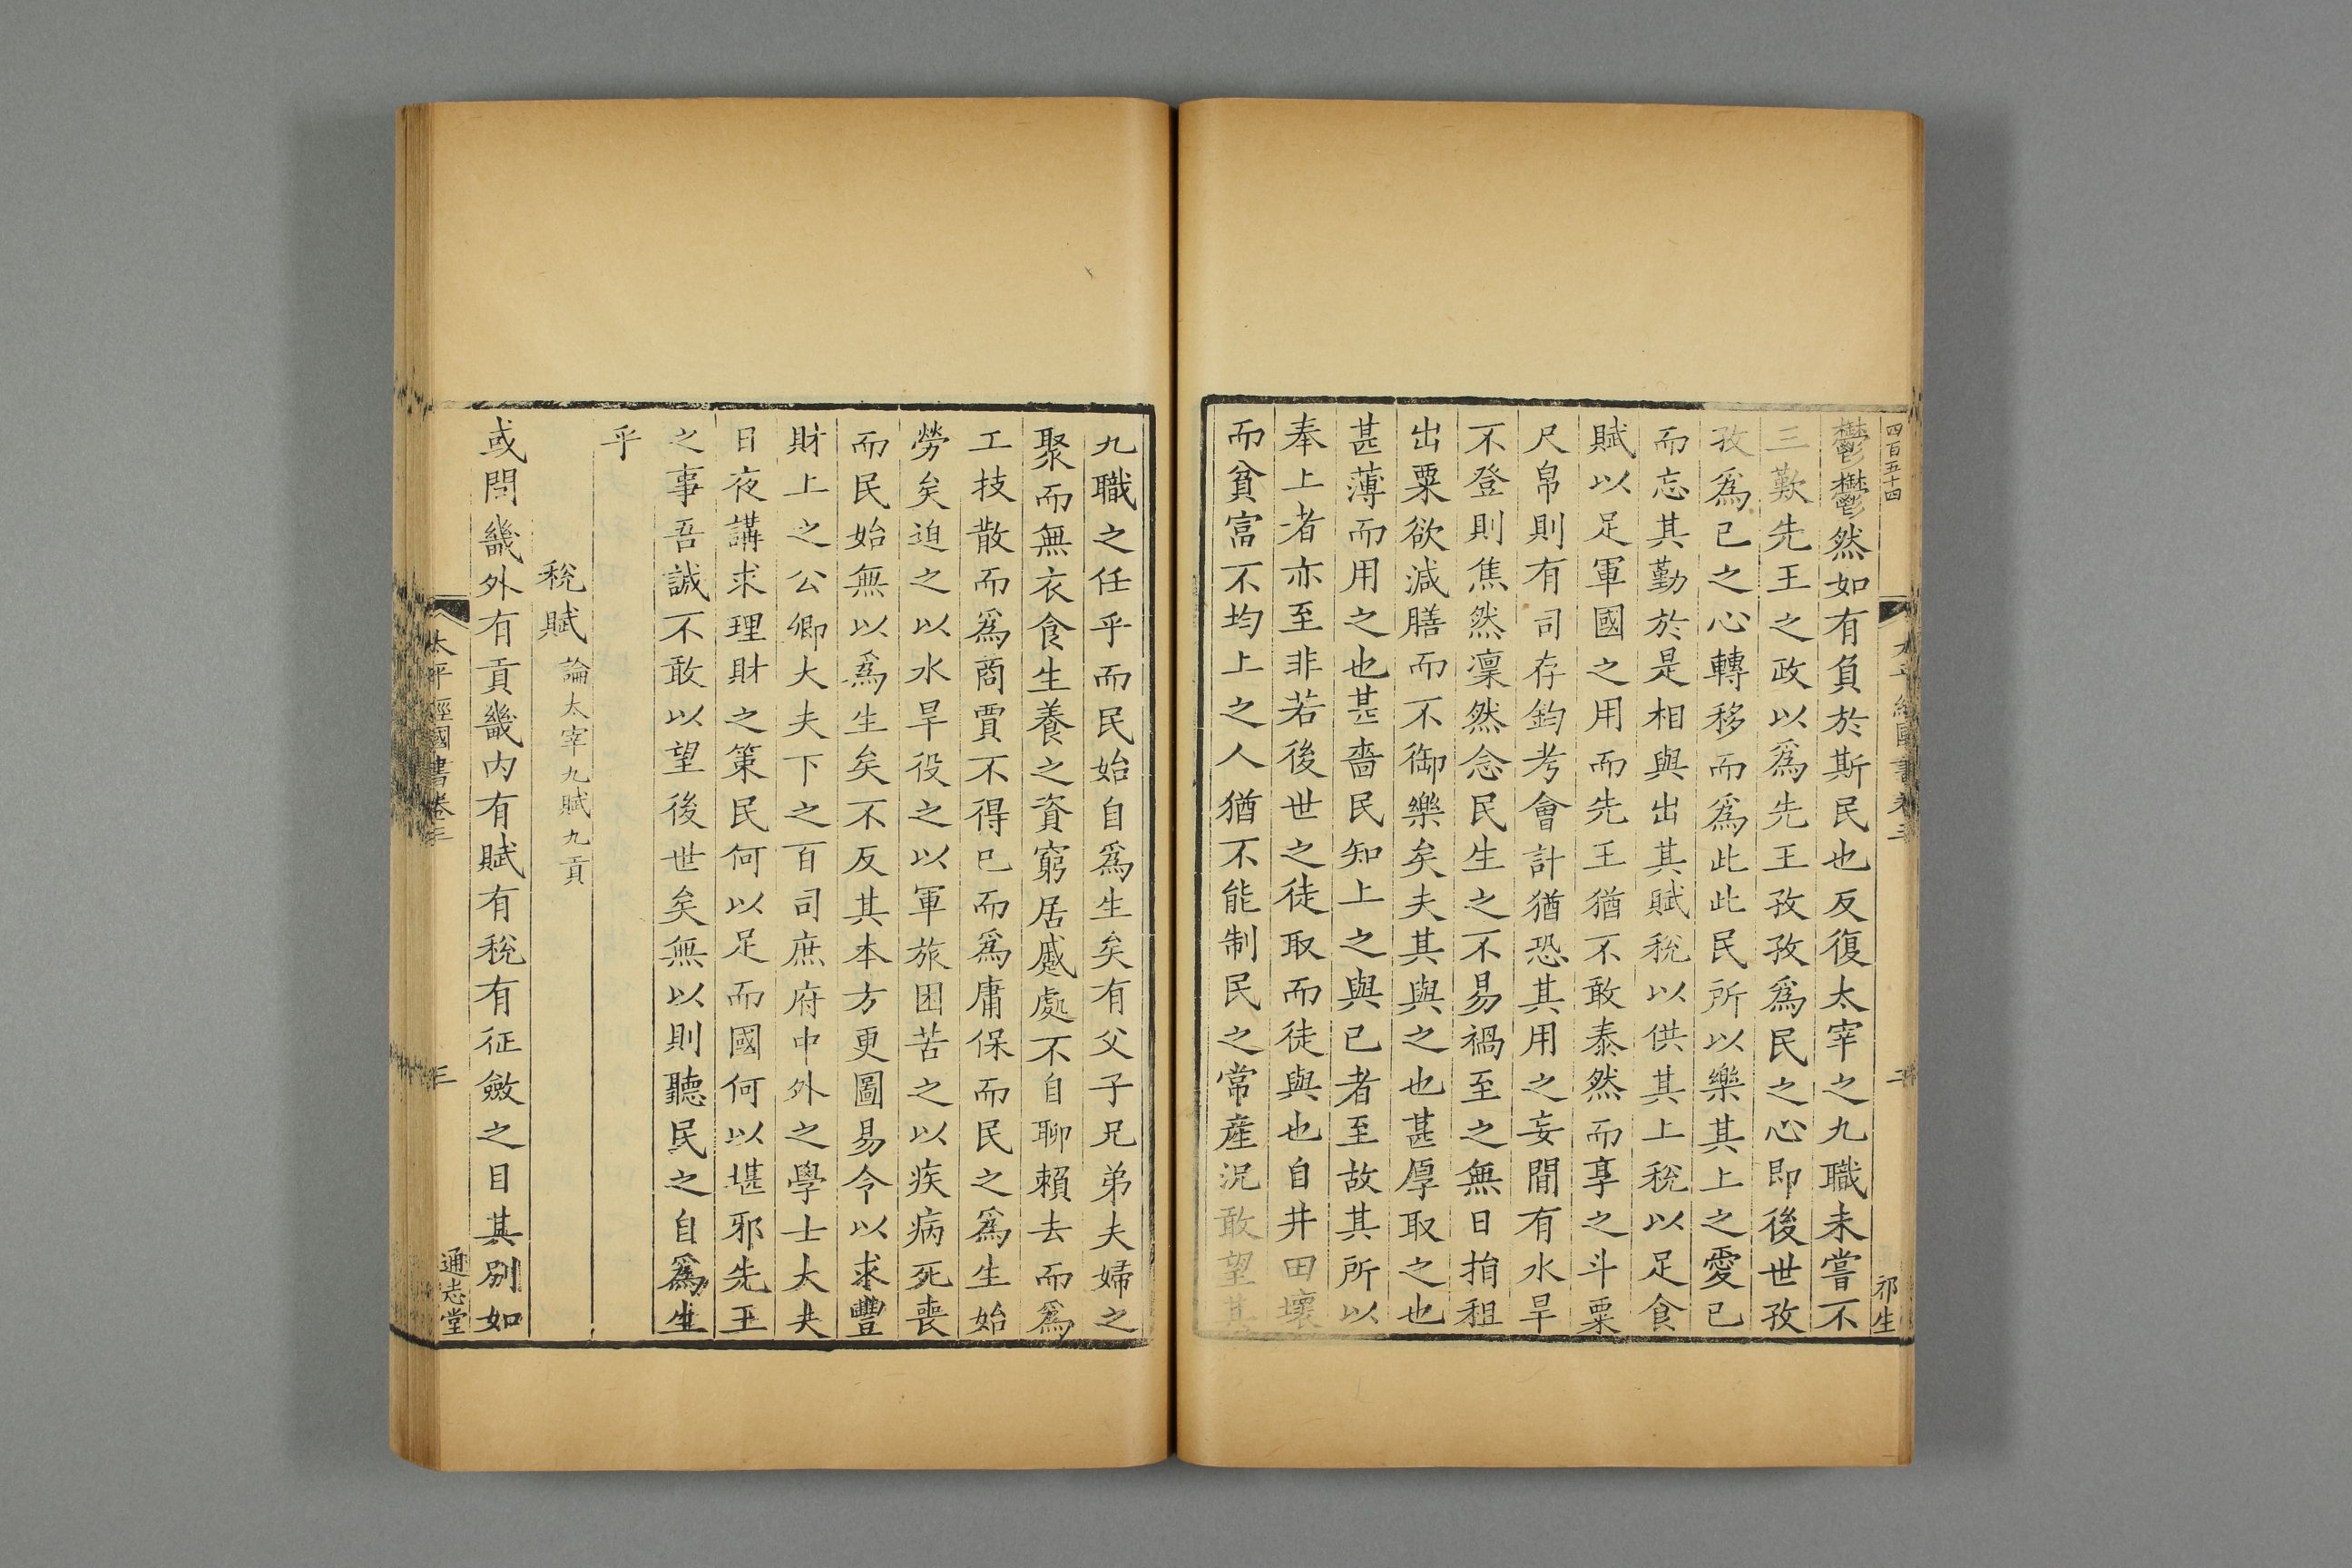 四百五十四
鬱鬱然如有負於斯民也反復太宰之九職未嘗不
三歎先王之政以爲先王孜孜爲民之心即後世孜
孜爲已之心轉移而爲此此民所以樂其上之愛已
而忘其勤於是相與出其賦稅以供其上稅以足食
賦以足軍國之用而先王猶不敢泰然而享之斗粟
尺帛則有司存鈞考會計猶恐其用之妄間有水旱
不登則焦然凜然念民生之不易禍至之無日捐租
出粟欲減膳而不御樂矣夫其與之也甚厚取之也
甚薄而用之也甚嗇民知上之與已者至故其所以
奉上者亦至非若後世之徒取而徒與也自井田壞
而貧富不均上之人猶不能制民之常產況敢望其
祁生
九職之任乎而民始自爲生矣有父子兄弟夫婦之
聚而無衣食生養之資窮居蹙處不自聊賴去而爲
工技散而爲商賈不得已而爲庸保而民之爲生始
勞矣迫之以水旱役之以軍旅困苦之以疾病死喪
而民始無以爲生矣不反其本方更圖易令以求豐
財上之公卿大夫下之百司庶府中外之學士大夫
日夜講求理財之策民何以足而國何以堪邪先王
之事吾誠不敢以望後世矣無以則聽民之自爲生
乎
稅賦論太宰九賦九貢
或問畿外有貢畿内有賦有稅有征斂之目其別如
太平經國書卷三
三
通志堂